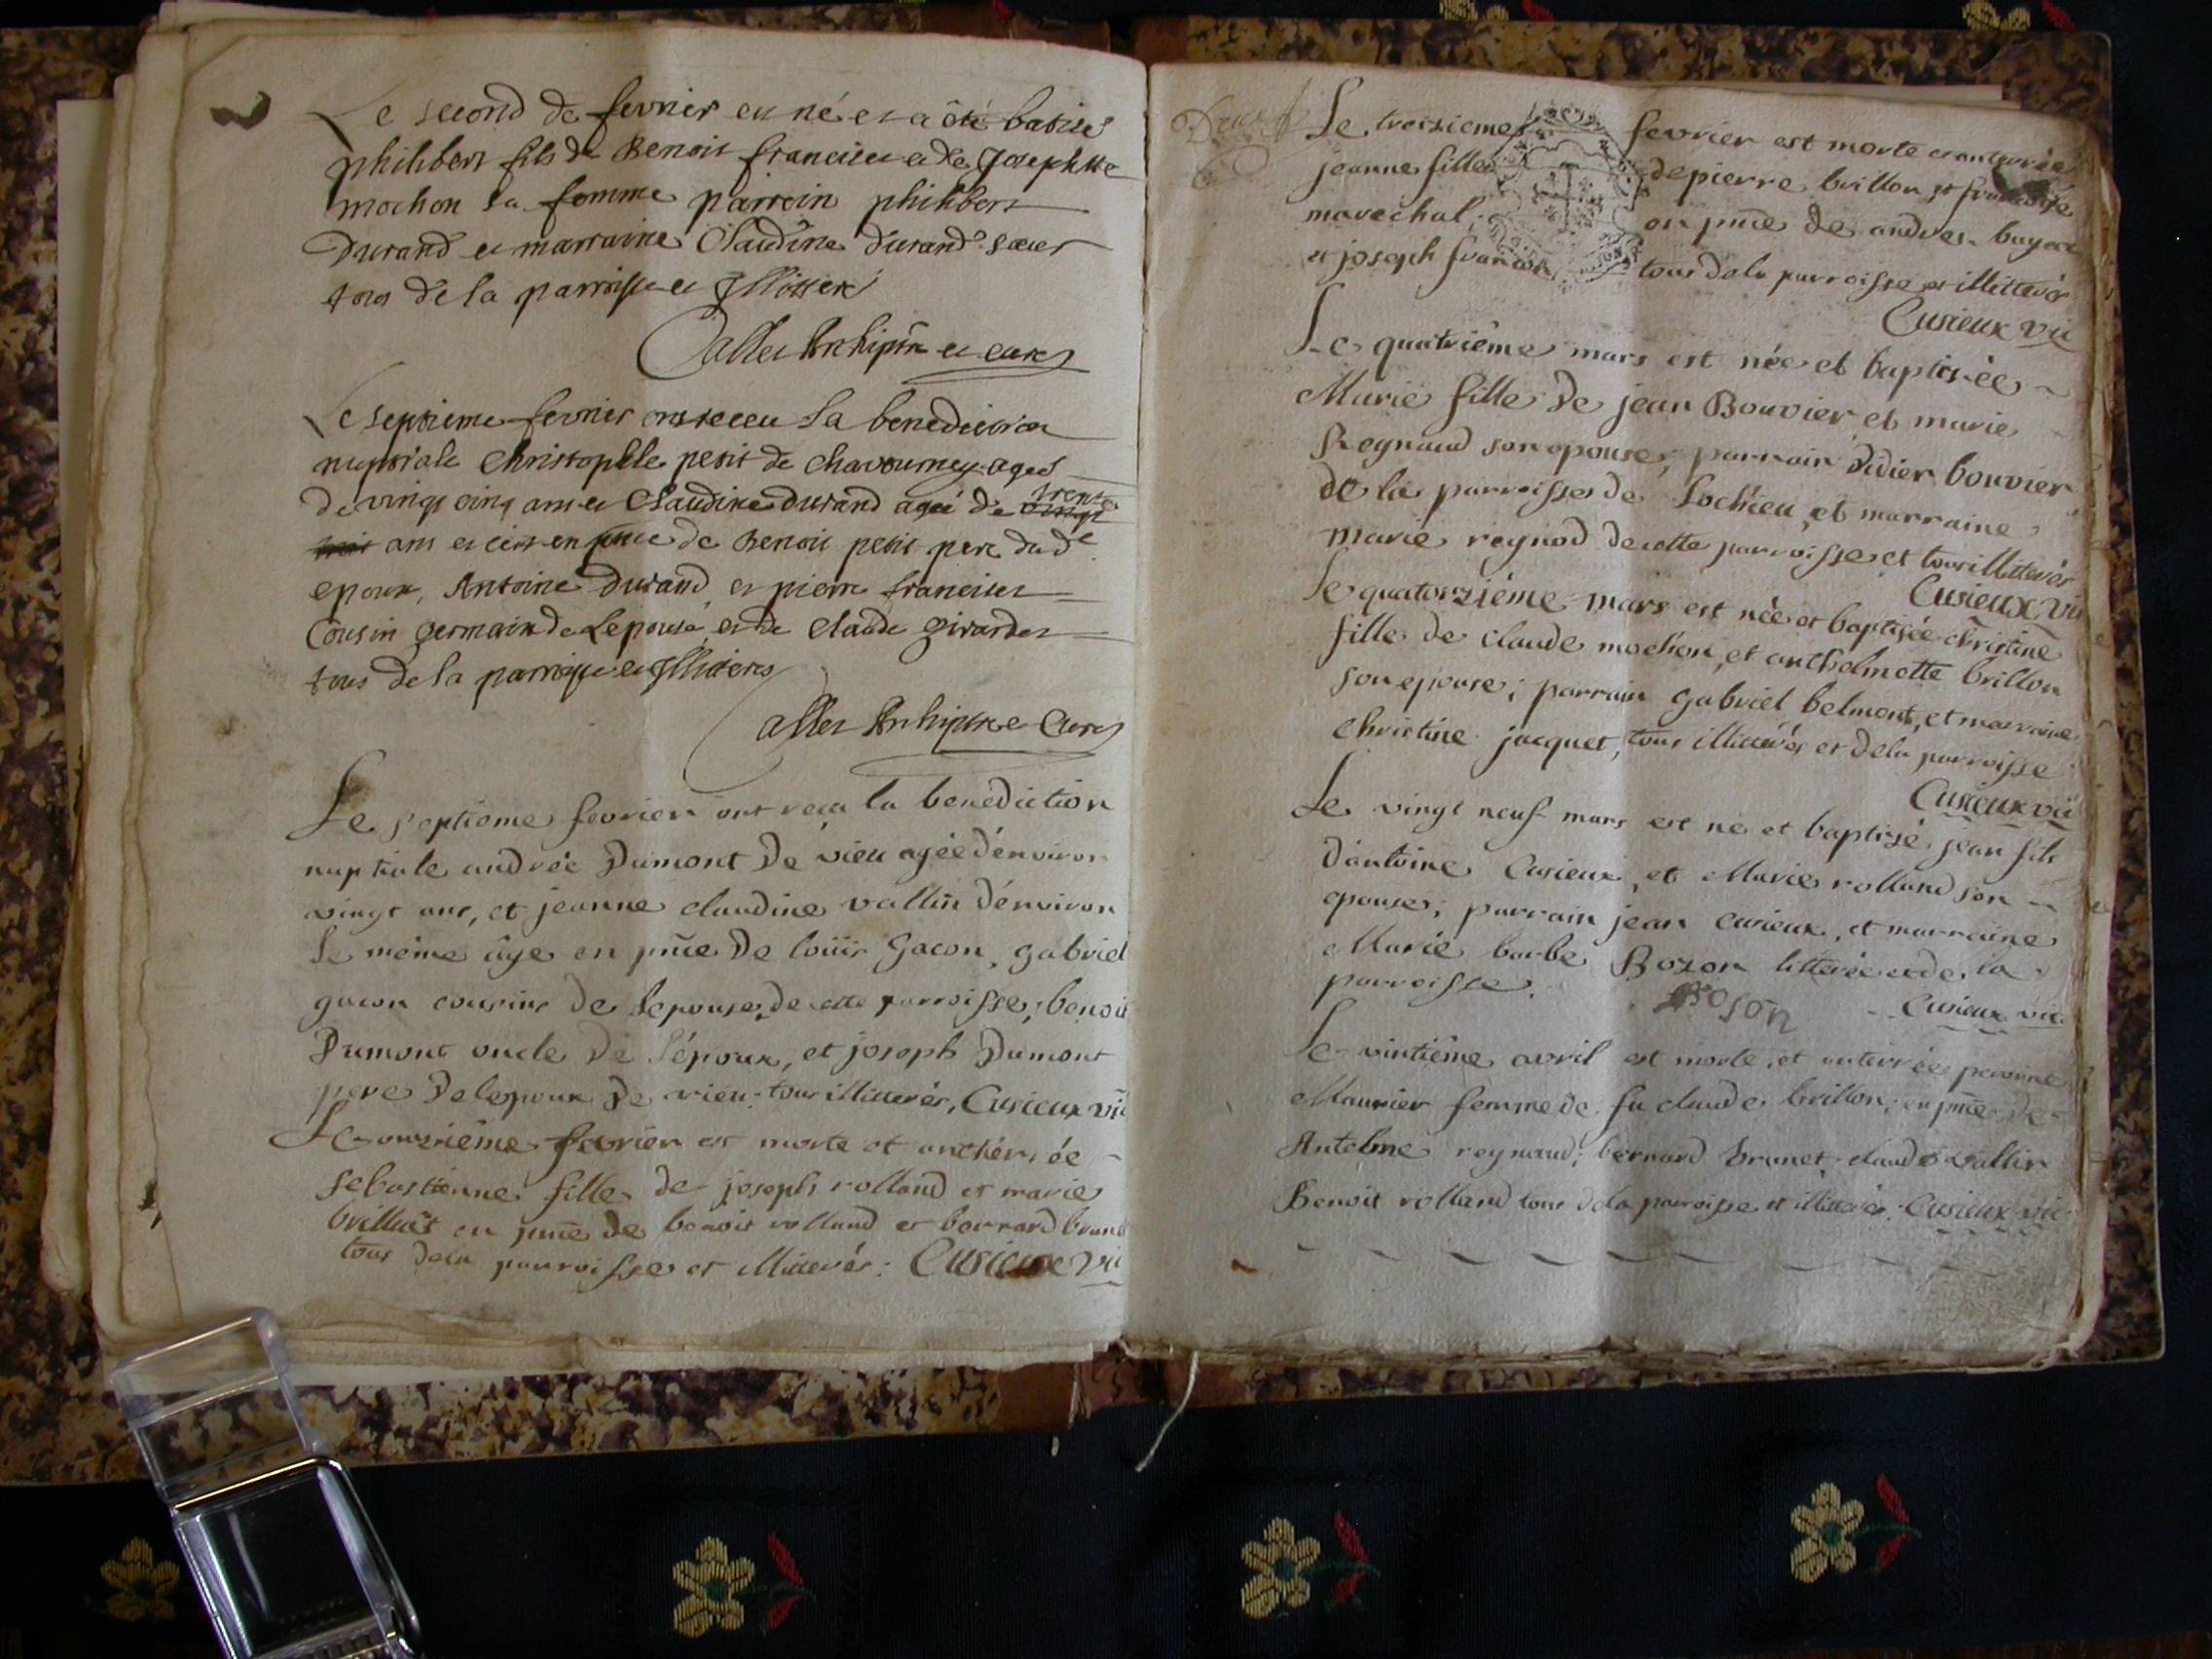 Le second de fevrier eu né et a ôté batisé
philibert fils de Benoit francillet et de Josephtte
mochon sa femme parrein philibert
Durand et marraine Claudine durand sœur
tous de la parroisse et Illitteré
Callet Archiprtre et curé
Le septieme fevrier ont receu la benediction
nuptiale Christophle petit de chavourney agés
de vingt cinq ans et Claudine durand ageé de trente
ans et ce en pnce de Benoit petit pere dud
epoux, Antoine durand et pierre
Cousin germain de Lepouse et de Claude girardet
tous de la parroisse et Illiteres
allet Archiptre et Curé
Le septieme fevrier ont reçu la benediction
nuptiale andrée Dumont De vieu agée d'environ
vingt ans, et jeanne claudine vallin d'environ
le même âge en pnce De loüis Gacon, gabriel
gacon cousins de lepouse, de cette parroisse, benoit
Dumont oncle De l'époux, et joseph Dumont
pere De lepoux De vieu tous illitterés, Cusieux vic
Le onzième fevrier est morte et antérrée
sebastienne fille de joseph rolland et marie
brilliat en pnce de benoit rolland et bernard brunet
tous dela parroisse et illitterés: Cusieux vic
Le troisieme fevrier est morte et anterrée
jeanne fille de pierre brillon et francoise
marechal; on pnce de andres
et joseph francon tous dela parroisse et illitterés
Cusieux vic
Le quatrième mars est née et baptisée
Marie fille De jean Bouvier et marie
Reynaud son epouse; parrain didier bouvier
de la parroisse de Lochieu, et marraine
marie reynod de cette parroisse et tous illitterés
Cusieux vic
Le quatorzième mars est née et baptisée christine
fille de claude mochon, et anthelmette brillon
son epouse; parrain gabriel belmont, et marraine
christine jacquet, tous illitterés et dela parroisse
Cusieux vic
Le vingt neuf mars est né et baptisé jean fils
d'antoine Cusieux, et Marie rolland son
epouse; parrain jean cusieux, et marraine
Marie barbe Bozon litterée et de la
parroisse. Boson Cusieux vic
Le vintième avril est morte et anterrée peronne
Maunier femme de fu claude brillon; en pnce de
Antelme reynaud; bernard brunet, claude vallin
Benoit rolland tous dela parroisse et illitterés: Cusieux vic